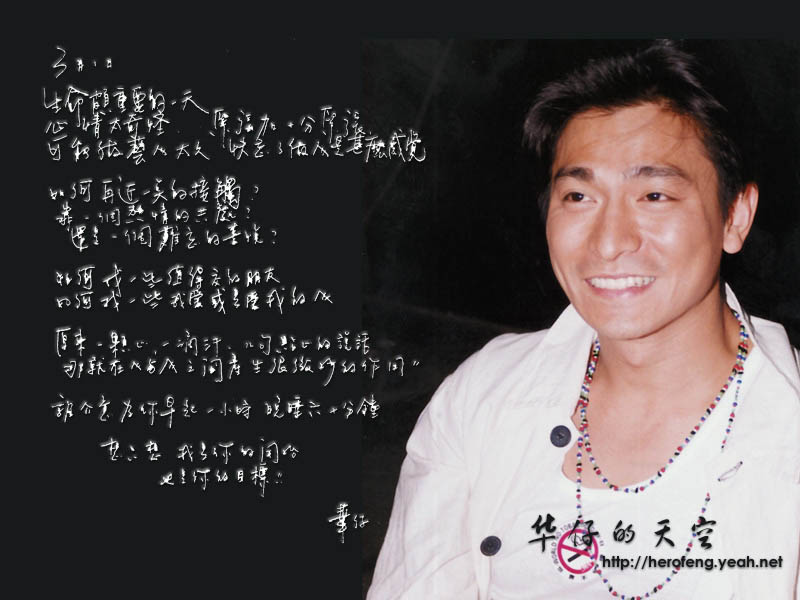 3月1日
生命頗重要的一天
心情太奇怪 緊張加十分緊張
可能做藝人太久 快忘了做人是甚麼感覺
如何再近一英的接觸?
靠一個熱情的共處?
還是一個難忘的
如何找一些值得交的朋友
如何找一些我愛或是愛我的人
原來一顆心、一滴汗、一句點心的說話
那就在人與人之間產生很微妙的作用"
誰介意為你早起一小時 晚睡六十分鐘
想一想 我是你的
也是你的目標"
華仔
华仔的天空
http://herofeng.yeah.net